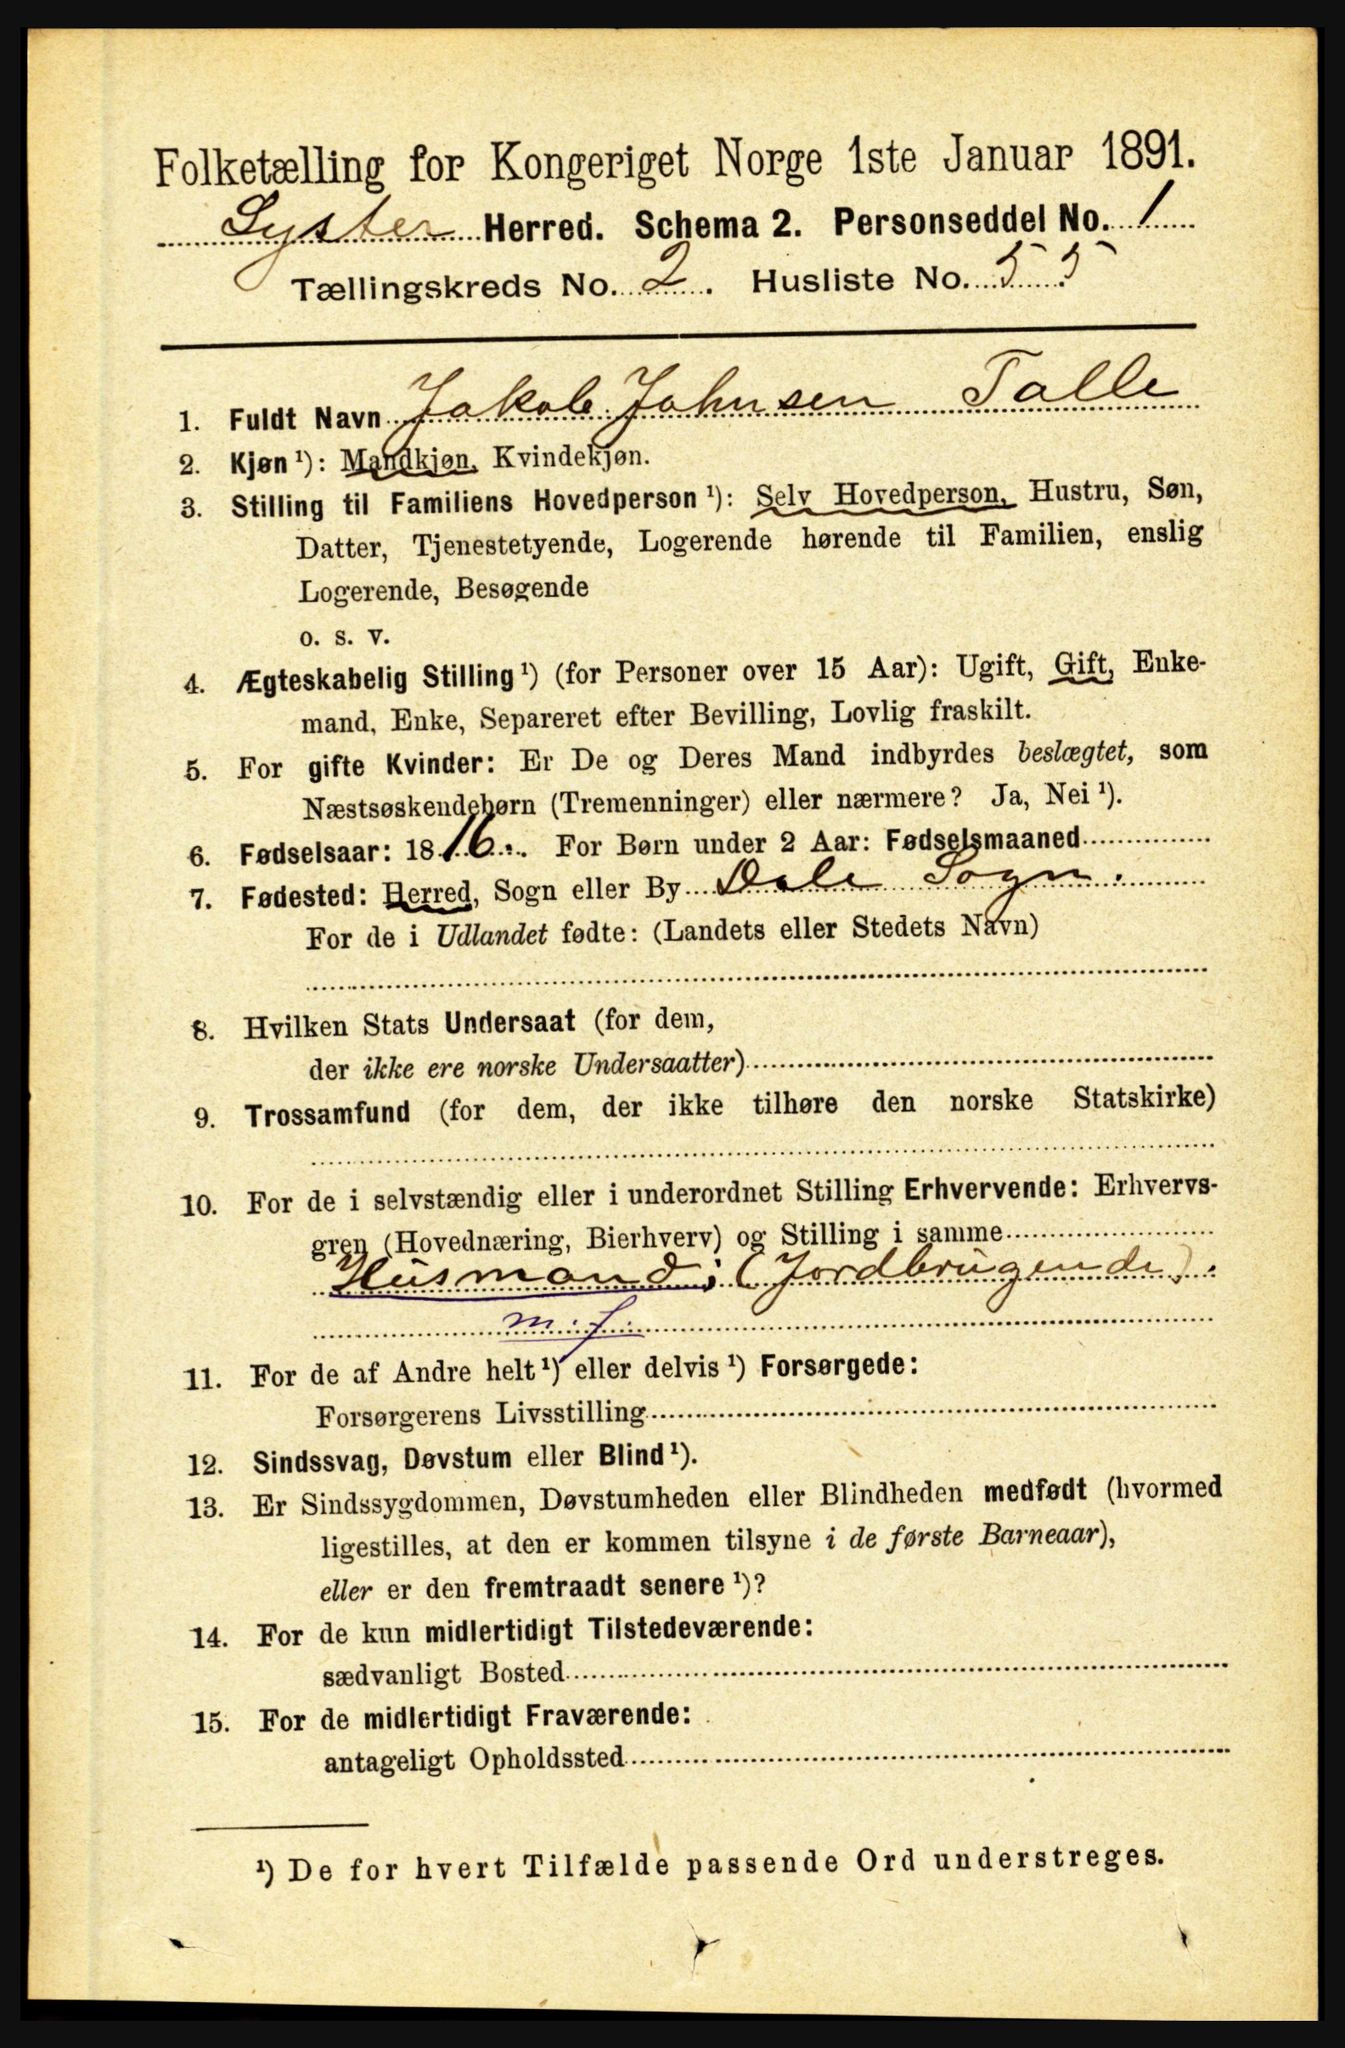 Folketælling for Kongeriget Norge 1ste Januar 1891.
Lyster Herred. Schema 2. Personseddel No. 1
Tællingskreds No. 2. Husliste No. 55
1. Fuldt Navn Jakob Johnsen Talle
2. Kjøn ¹): Mandkjøn, Kvindekjøn.
3. Stilling til Familiens Hovedperson ¹): Selv Hovedperson, Hustru, Søn,
Datter, Tjenestetyende, Logerende hørende til Familien, enslig
Logerende, Besøgende
o. s. v.
4. Ægteskabelig Stilling ¹) (for Personer over 15 Aar): Ugift, Gift, Enke-
mand, Enke, Separeret efter Bevilling, Lovlig fraskilt.
5. For gifte Kvinder: Er De og Deres Mand indbyrdes beslægtet, som
Næstsøskendebørn (Tremenninger) eller nærmere? Ja, Nei ¹).
6. Fødselsaar: 1816. For Børn under 2 Aar: Fødselsmaaned
7. Fødested: Herred, Sogn eller By Dale Sogn.
For de i Udlandet fødte: (Landets eller Stedets Navn)
8. Hvilken Stats Undersaat (for dem,
der ikke ere norske Undersaatter)
9. Trossamfund (for dem, der ikke tilhøre den norske Statskirke)
10. For de i selvstændig eller i underordnet Stilling Erhvervende: Erhvervs-
gren (Hovednæring, Bierhverv) og Stilling i samme
Husmand; (Jordbrugende).
m. j.
11. For de af Andre helt ¹) eller delvis ¹) Forsørgede:
Forsørgerens Livsstilling
12. Sindssvag, Døvstum eller Blind ¹).
13. Er Sindssygdommen, Døvstumheden eller Blindheden medfødt (hvormed
ligestilles, at den er kommen tilsyne i de første Barneaar),
eller er den fremtraadt senere ¹)?
14. For de kun midlertidigt Tilstedeværende:
sædvanligt Bosted
15. For de midlertidigt Fraværende:
antageligt Opholdssted
¹) De for hvert Tilfælde passende Ord understreges.